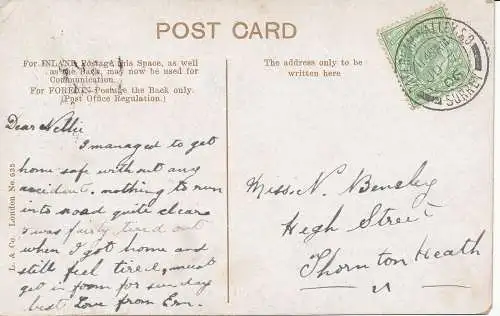 POST CARD
For INLAND Postage this Space, as well
as the Back, may now be used for
Communication.
For FOREIGN Postage the Back only.
(Post Office Regulation.)
The address only to be
written here
Dear Nellie
I managed to get
home safe without any
accident. nothing to run
into road quite clear
I was fairly tired out
when I got home and
still feel tired, must
get in form for sunday
best Love from Ern.
L. & Co. London No. 535
Miss. N. Bensley
High Street
Thornton Heath
VALLEY S.O.
05
SURREY